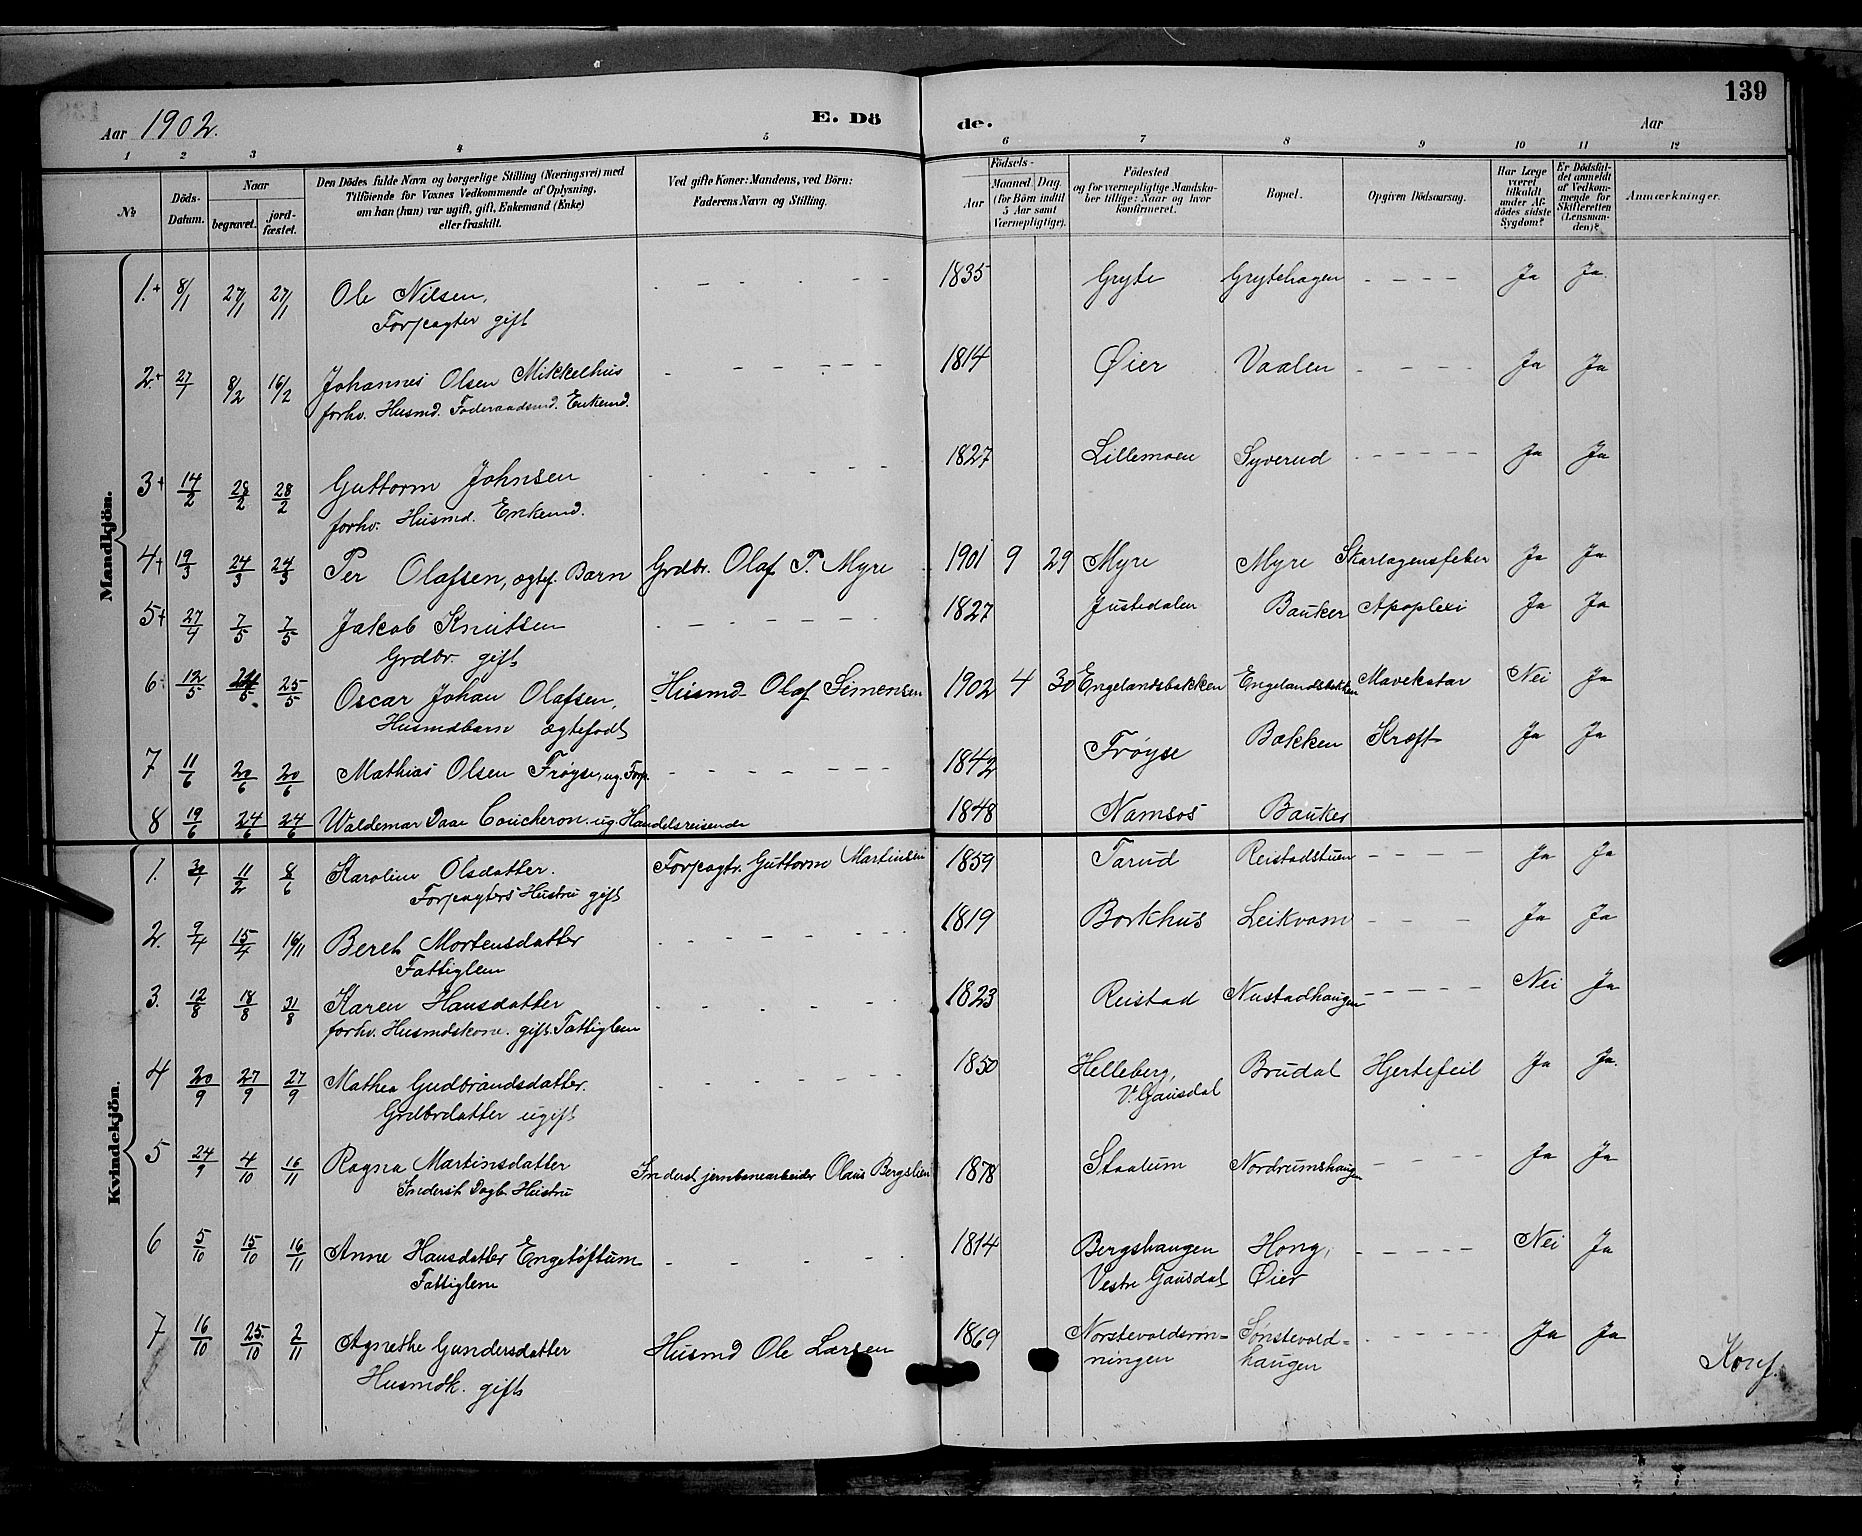 139
Aar 1902.
E. Dö
de.
Aar
1 2 3 4 5 6 7 8 9 10 11 12
№
Döds-Datum.
Naar
begravet.
jord-fæstet.
Den Dödes fulde Navn og borgerlige Stilling (Næringsvei) med
Tilföiende for Voxnes Vedkommende af Oplysning,
om han (hun) var ugift, gift, Enkemand (Enke)
eller fraskilt.
Ved gifte Koner: Mandens, ved Börn:
Faderens Navn og Stilling.
Födsels-
Aar
Maaned Dag.
(for Börn indtil
5 Aar samt
Værnepligtige).
Födested
og for værnepligtige Mandska-
ber tillige: Naar og hvor
konfirmeret.
Bopæl.
Opgiven Dödsaarsag.
Har Læge
været
tilkaldt
under Af-
dödes sidste
Sygdom?
Er Dödsfal-
det anmeldt
af Vedkom-
mende for
Skifteretten
(Lensman-
den)?
Anmærkninger.
Mandkjön.
1.+ 8/1 27/1 27/1 Ole Nilsen, - - - - - 1835 Gryte Grytehagen - - - - Ja Ja.
Forpagter gift
2.+ 27/1 8/2 16/2 Johannes Olsen Mikkelhus - - - - - - 1814 Øier Vaalen - - - - Ja Ja
forhv. Husmd. Føderaadsmd. Enkemd.
3+ 14/2 28/2 28/2 Guttorm Johnsen - - - - - - 1827 Lillemoen Syverud - - - - - Ja Ja
forhv. Husmd. Enkemd.
4+ 19/3 24/3 24/3 Per Olafsen, ægtef. Barn Grdbr. Olaf P. Myre 1901 9 29 Myre Myre Skarlagensfeber Ja Ja
5+ 27/4 7/5 7/5 Jakob Knutsen - - - - - - - 1827 Justedalen Bauker Apoplexi Ja Ja
Grdbr. gift
6 12/5 24/5 25/5 Oscar Johan Olafsen, Husmd Olaf Simensen 1902 4 30 Engelandsbakken Engelandsbakken Mavekatar Nei Ja
Husmdbarn ægtefødt
7 11/6 20/6 20/6 Mathias Olsen Frøyse, ug. Forp. - - - - - - - 1842 Frøyse Bakken Kræft Ja Ja
8 19/6 24/6 24/6 Waldemar Daae Coucheron ug. Handelsreisende 1848 Namsos Bauker
Kvindekjön.
1. 30/1 11/2 8/6 Karoline Olsdatter. Forpagtr. Guttorm Martinsen 1859 Tarud Reistadstuen - - - - Ja Ja
Forpagters Hustru gift
2. 9/4 15/4 16/11 Beret Mortensdatter - - - - - - - 1819 Borkhus Leikvam - - - - Ja Ja
Fattiglem
3. 12/8 18/8 31/8 Karen Hansdatter - - - - - 1823 Reistad Nustadhaugen - - - - - Nei Ja
forhv. Husmdskone. gift. Fattiglem
4 20/9 27/9 27/9 Mathea Gudbrandsdatter. - - - - - - 1850 Helleberg, Brudal Hjertefeil Ja Ja.
Grdbrdatter ugift V. Gausdal
5 24/9 4/10 16/11 Ragna Martinsdatter Inderst jernbanearbeider Olaus Bergslien 1878 Staalum Nordrumshaugen - - - - Ja Ja
Inderst Dagb. Hustru
6 5/10 15/10 16/11 Anne Hansdatter Engetøftum - - - - 1814 Bergshaugen Hong, - - - - - Nei Ja
Fattiglem Vestre Gausdal Øier
7 16/10 25/10 2/11 Agnethe Gundersdatter Husmd Ole Larsen 1869 Norstevoldsrøn= Sønstevold= - - - - - Ja Ja
Husmdk. gift ningen haugen
Konf.